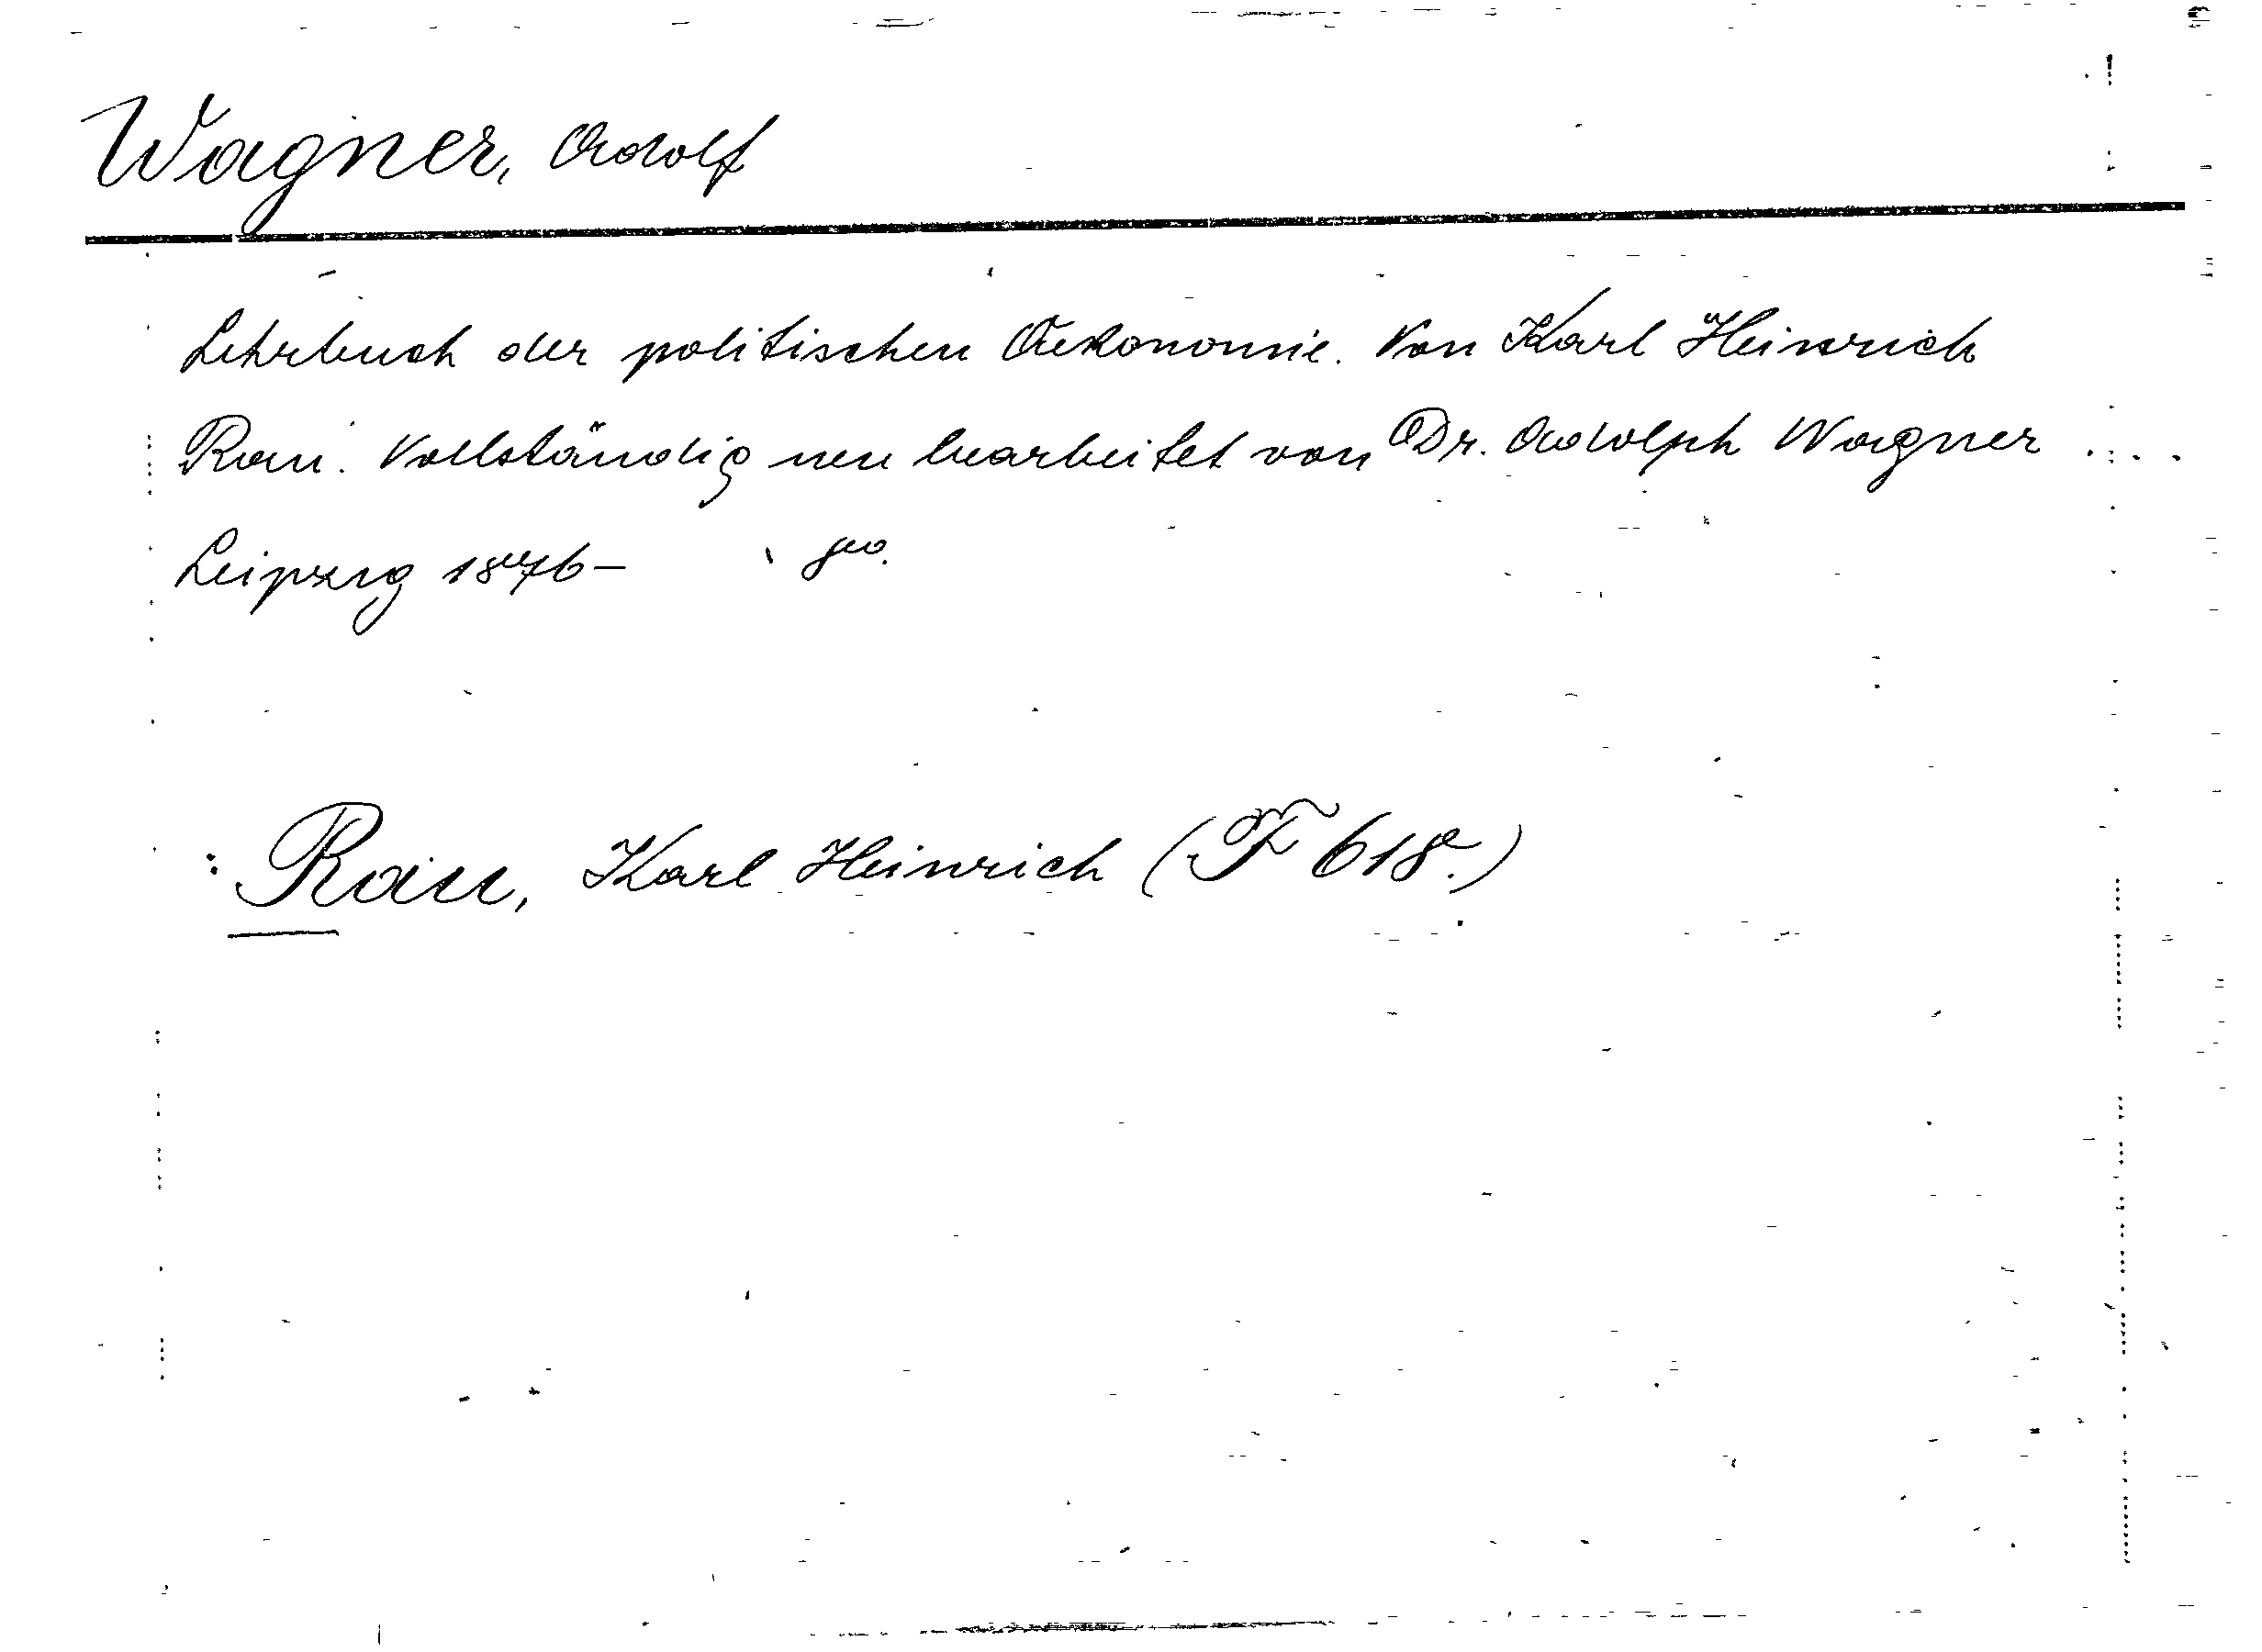 Wagner, Adolf
Lehrbuch der politischen Oekonomie. Von Karl Heinrich
Rau. Vollständig neu bearbeitet von Dr. Adolph Wagner ....
Leipzig 1876- 8vo.
: Rau, Karl Heinrich (F 618.)